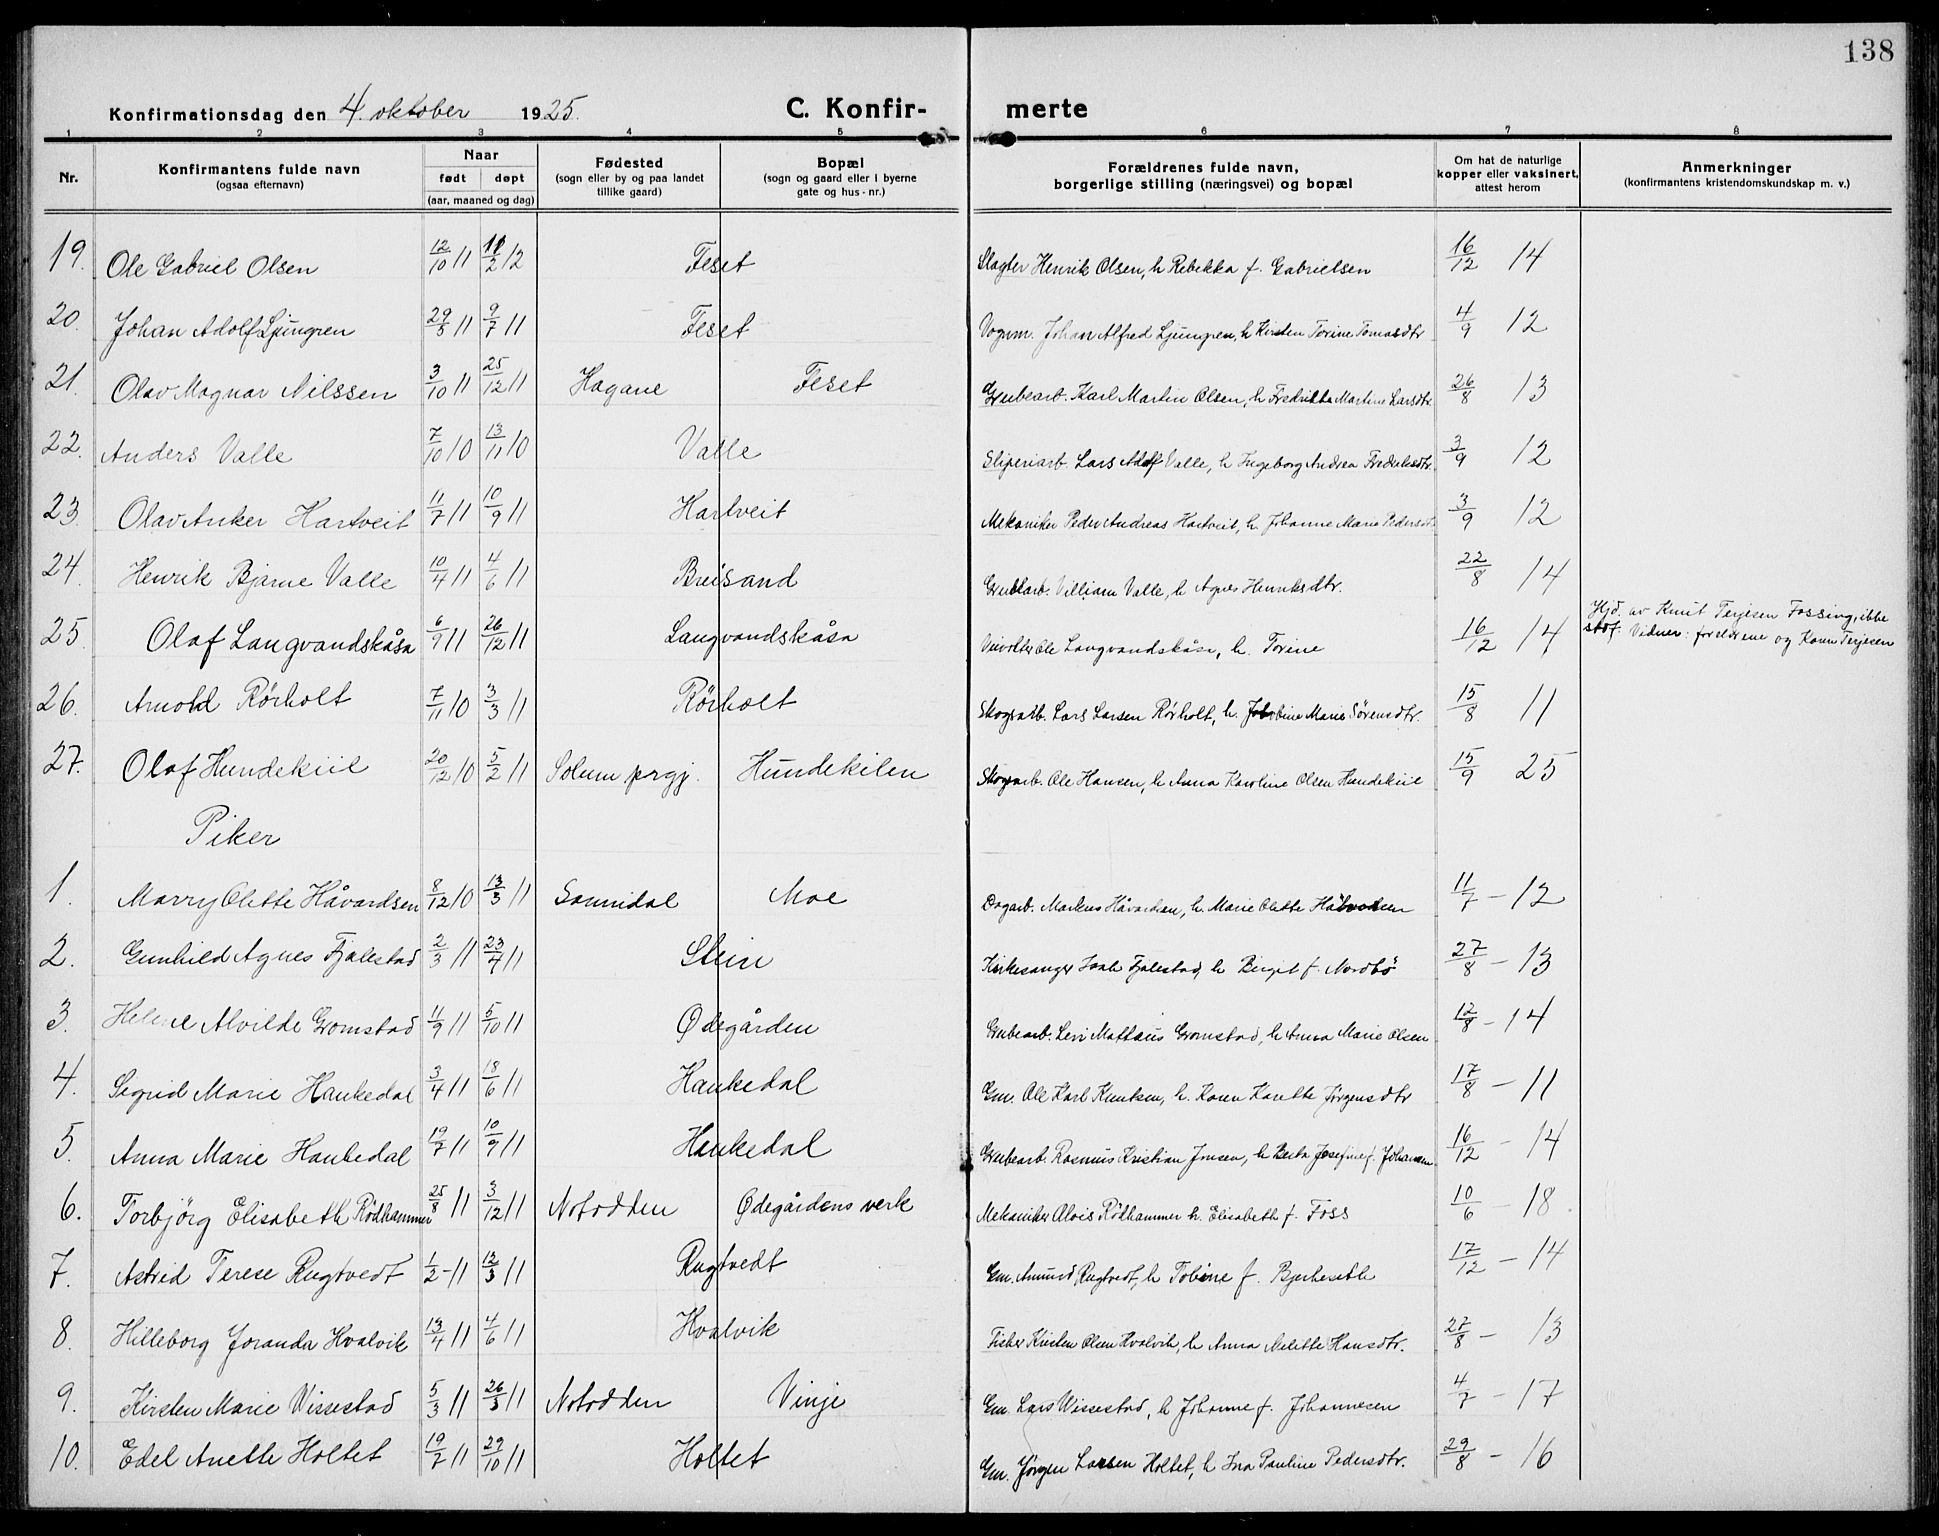 138
Konfirmationsdag den 4. oktober 1925. C. Konfir- merte
1 2 3 4 5 6 7 8
Nr. Konfirmantens fulde navn (ogsaa efternavn) Naar født døpt (aar, maaned og dag) Fødested (sogn eller by og paa landet tillike gaard) Bopæl (sogn og gaard eller i byerne gate og hus-nr.) Forældrenes fulde navn, borgerlige stilling (næringsvei) og bopæl Om hat de naturlige kopper eller vaksinert, attest herom Anmerkninger (konfirmantens kristendomskundskap m. v.)
19. Ole Gabriel Olsen 12/10 11 11/2 12 Feset Slagter Henrik Olsen, h Rebekka f. Gabrielsen 16/12 14
20. Johan Adolf Ljungren 29/5 11 9/7 11 Feset Vognm. Johan Alfred Ljungren, h Kirsten Torine Tomasdtr 4/9 12
21. Olav Magnar Nilssen 3/10 11 25/12 11 Hagane Feset Grubearb. Karl Martin Olsen, h Fredrikke Martine Larsdtr. 26/8 13
22. Anders Valle 7/10 10 13/11 10 Valle Sliperiarb. Lars Adolf Valle, h Ingeborg Andrea Fredriksdtr. 3/9 12
23. Olav Anker Hartveit 11/7 11 10/9 11 Hartveit Mekaniker Peder Andreas Hartveit, h. Johanne Marie Pedersdt. 3/9 12
24. Henrik Bjarne Valle 10/4 11 4/6 11 Breisand Grubearb. Villiam Valle, h Agnes Henriksdtr. 22/8 14
25 Olaf Langvandskåsa 6/9 11 26/12 11 Langvandskåsa Ole Langvandskåsa, h. Torine 16/12 14 Hjd. av Knut Terjesen Fossing, ikke
stof. Vidner: foreldrene og Karen Terjesen
26. Arnold Rörholt 7/11 10 3/3 11 Rörholt Skogsarb. Lars Larsen Rörholt, h. Marie Sörensdtr. 15/8 11
27. Olaf Hundekiil 20/12 10 5/2 11 Solum prgj. Hundekilen Skogsarb. Ole Hansen, h Anna Karoline Olsen Hundekiil 15/9 25
Piker
1. Marry Olette Håvardsen 8/12 10 13/3 11 Sannidal Moe Dagarb. Markus Håvardsen, h. Marie Olette Håvardsen 11/7 - 12
2. Gunhild Agnes Fjalestad 2/3 11 23/4 11 Stein Kirkesanger Isak Fjalestad, h Birgit f. Nordbö 27/8 - 13
3. Helene Alvilde Gromstad 11/9 11 5/10 11 Ødegården Grubearb. Levi Mattæus Gromstad, h Anna Marie Olsen 12/8 - 14
4. Sigrid Marie Haukedal 3/4 11 18/6 11 Haukedal Gm. Ole Karl Knutsen, h. Karen Karette Jörgensdtr 17/8 - 11
5. Anna Marie Haukedal 19/7 11 10/9 11 Haukedal Grubearb. Rasmus Kristian Jonsen, h Berta Josefine f. Johansen 16/12 - 14
6. Torbjörg Elisabeth Rödhammer 25/8 11 3/12 11 Notodden Ødegårdens verk Mekaniker Alois Rödhammer h. Elisabeth f. Foss 10/6 - 18
7. Astrid Terese Rugtvedt 1/2 - 11 12/3 11 Rugtvedt Gm. Amund Rugtvedt, h Tobine f. Bjerkeseth 17/12 - 14
8. Hilleborg Joranda Hvalvik 13/4 11 4/6 11 Hvalvik Fisker Kirsten Olsen Hvalvik, h Anna Nelitte Hansdtr. 27/8 - 13
9. Kirsten Marie Vissestad 5/3 11 26/3 11 Notodden Vinje Gm. Lars Vissestad, h Johanne f. Johannesen 4/7 - 17
10. Edel Anette Holtet 19/7 11 29/10 11 Holtet Gm. Jörgen Larsen Holtet, h Ina Pauline Pedersdtr. 29/8 - 16